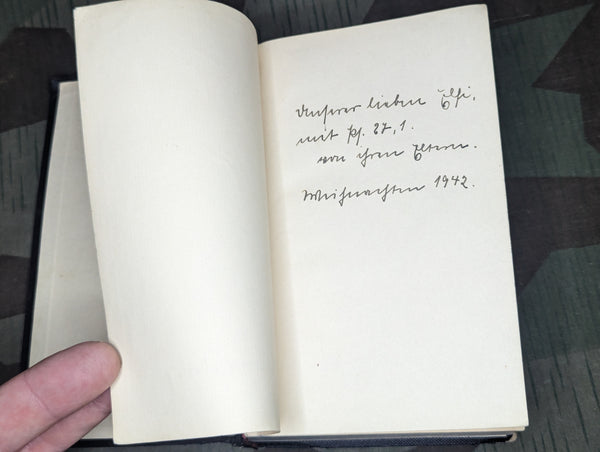 Unserer lieben Elfi,
mit Ps. 27, 1.
von ihren Eltern.
Weihnachten 1942.